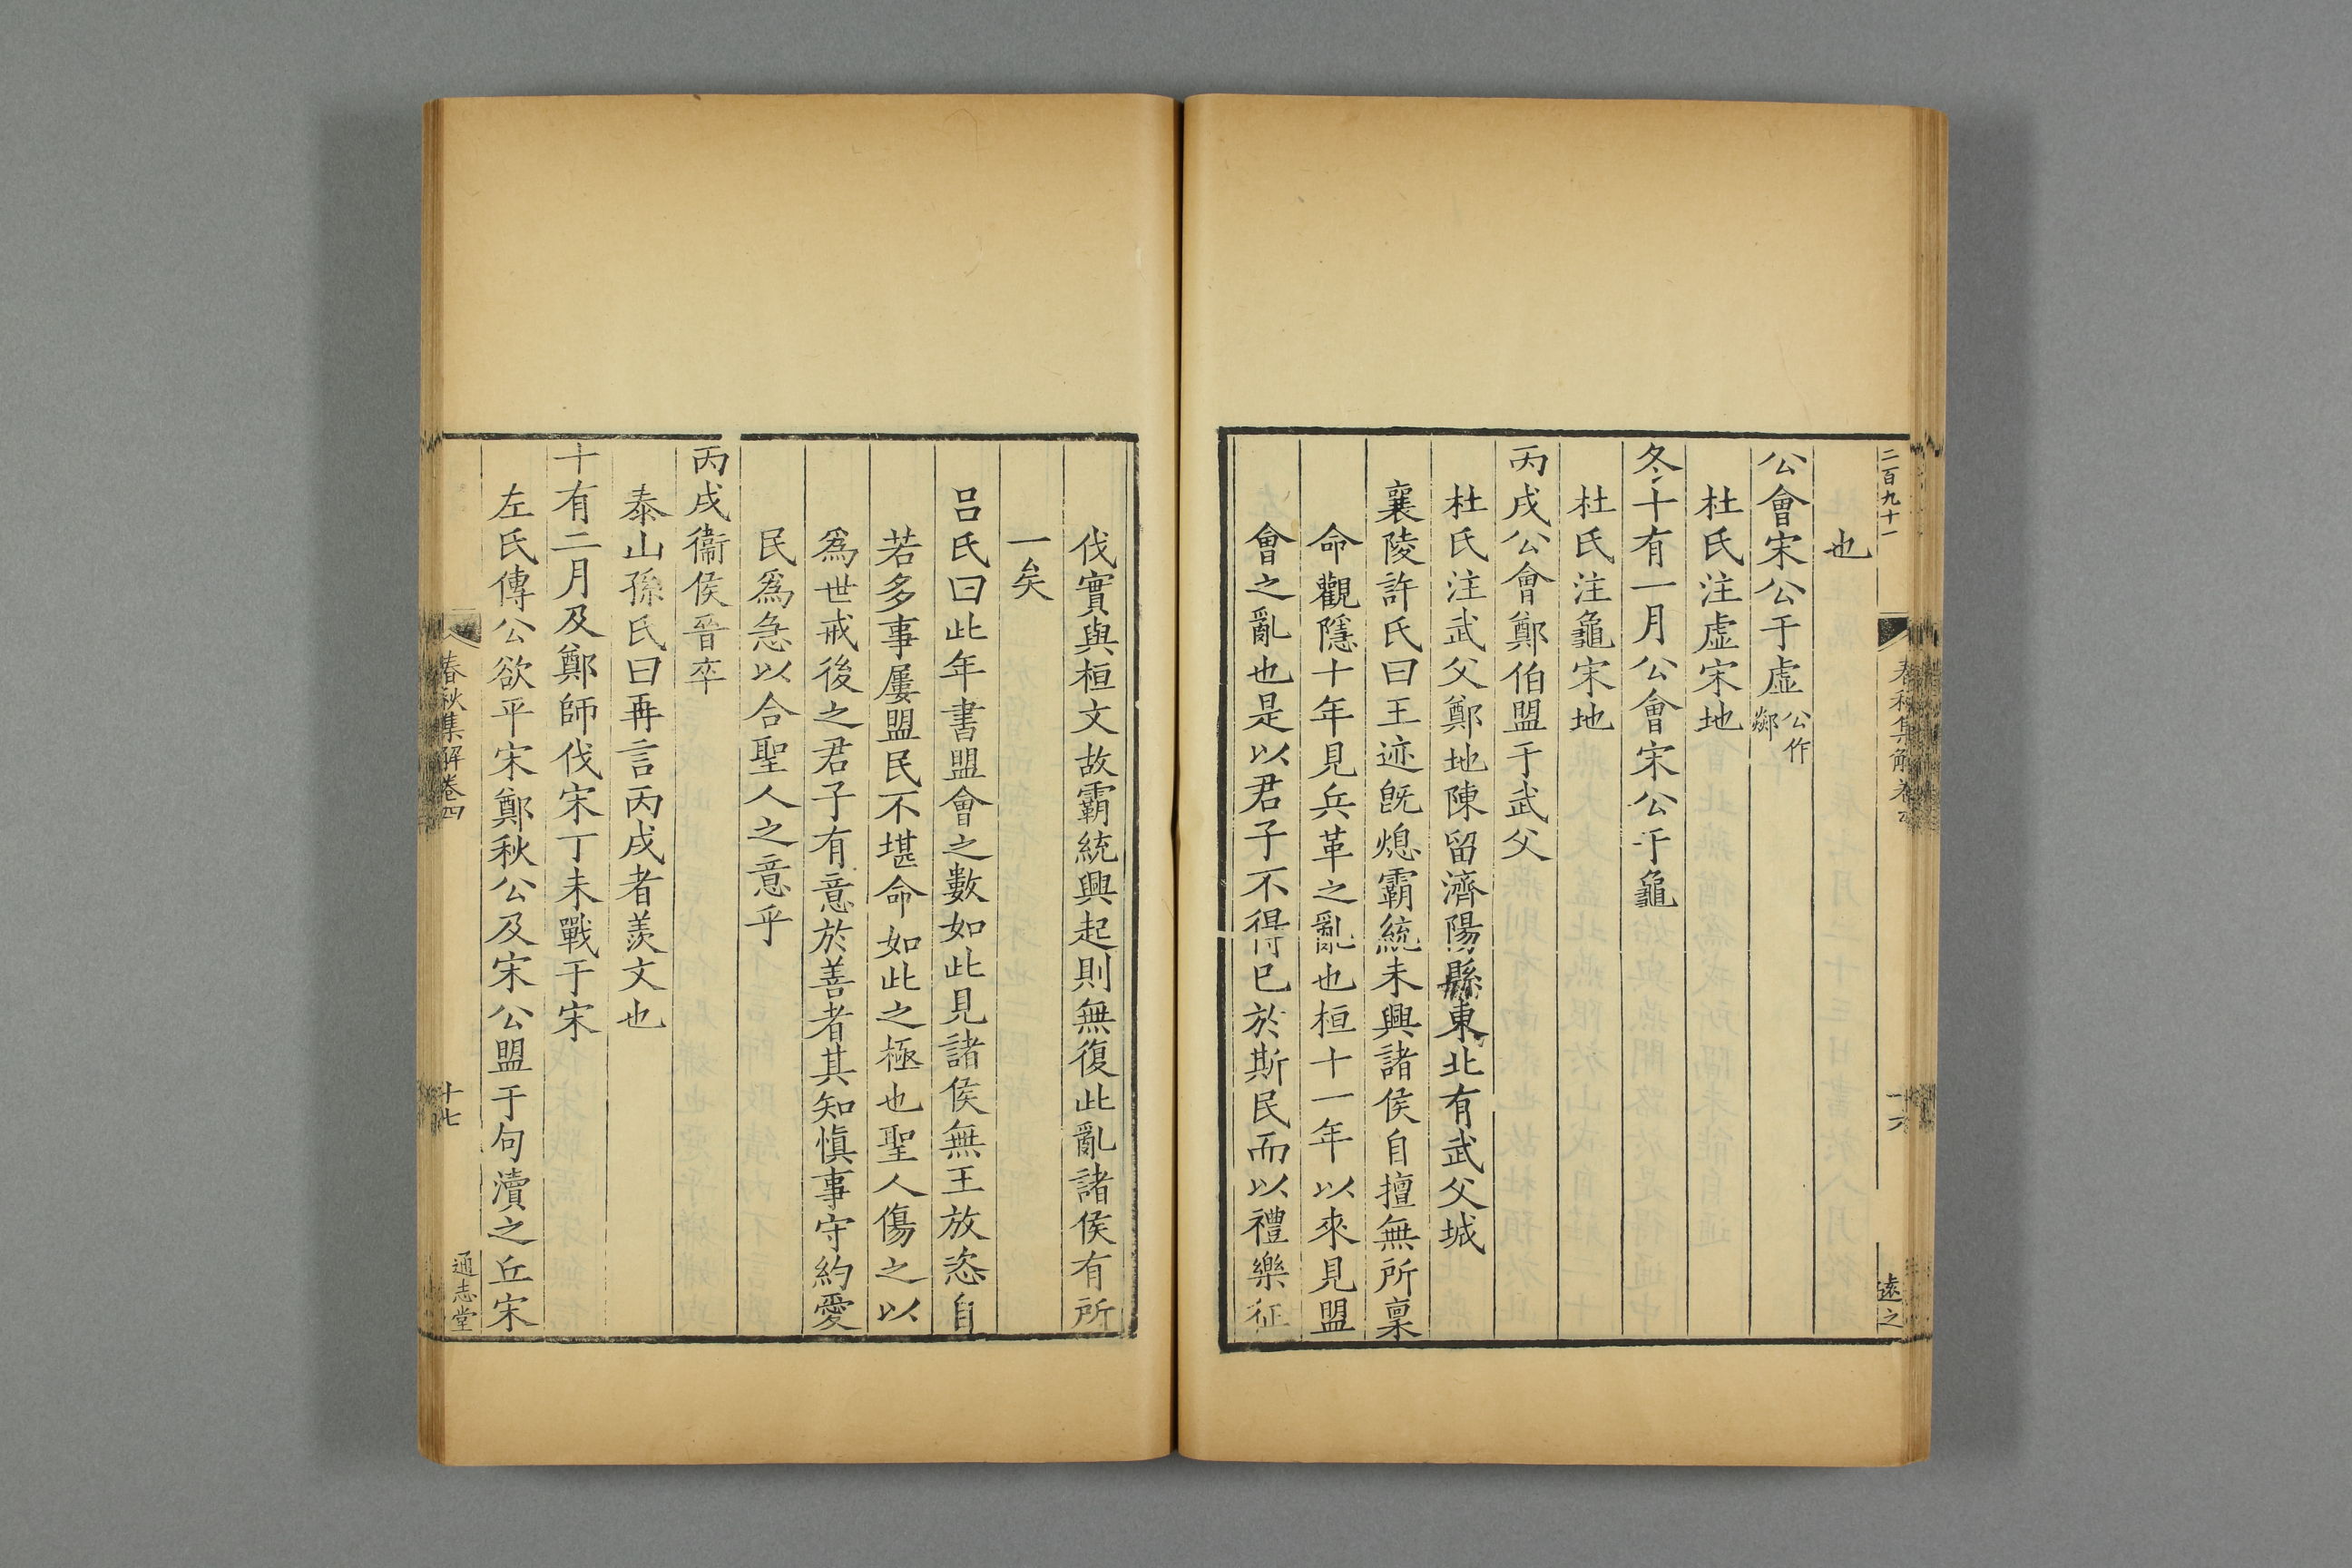 二百九十一
春秋集解卷四
十六
遠之
也
公會宋公于虛公作郯
杜氏注虛宋地
冬十有一月公會宋公于龜
杜氏注龜宋地
丙戌公會鄭伯盟于武父
杜氏注武父鄭地陳留濟陽縣東北有武父城
襄陵許氏曰王迹旣熄霸統未興諸侯自擅無所稟
命觀隱十年見兵革之亂也桓十一年以來見盟
會之亂也是以君子不得已於斯民而以禮樂征
伐實與桓文故霸統興起則無復此亂諸侯有所
一矣
呂氏曰此年書盟會之數如此見諸侯無王放恣自
若多事屢盟民不堪命如此之極也聖人傷之以
爲世戒後之君子有意於善者其知愼事守約愛
民爲急以合聖人之意乎
丙戌衞侯晉卒
泰山孫氏曰再言丙戌者羨文也
十有二月及鄭師伐宋丁未戰于宋
左氏傳公欲平宋鄭秋公及宋公盟于句瀆之丘宋
春秋集解卷四
十七
通志堂